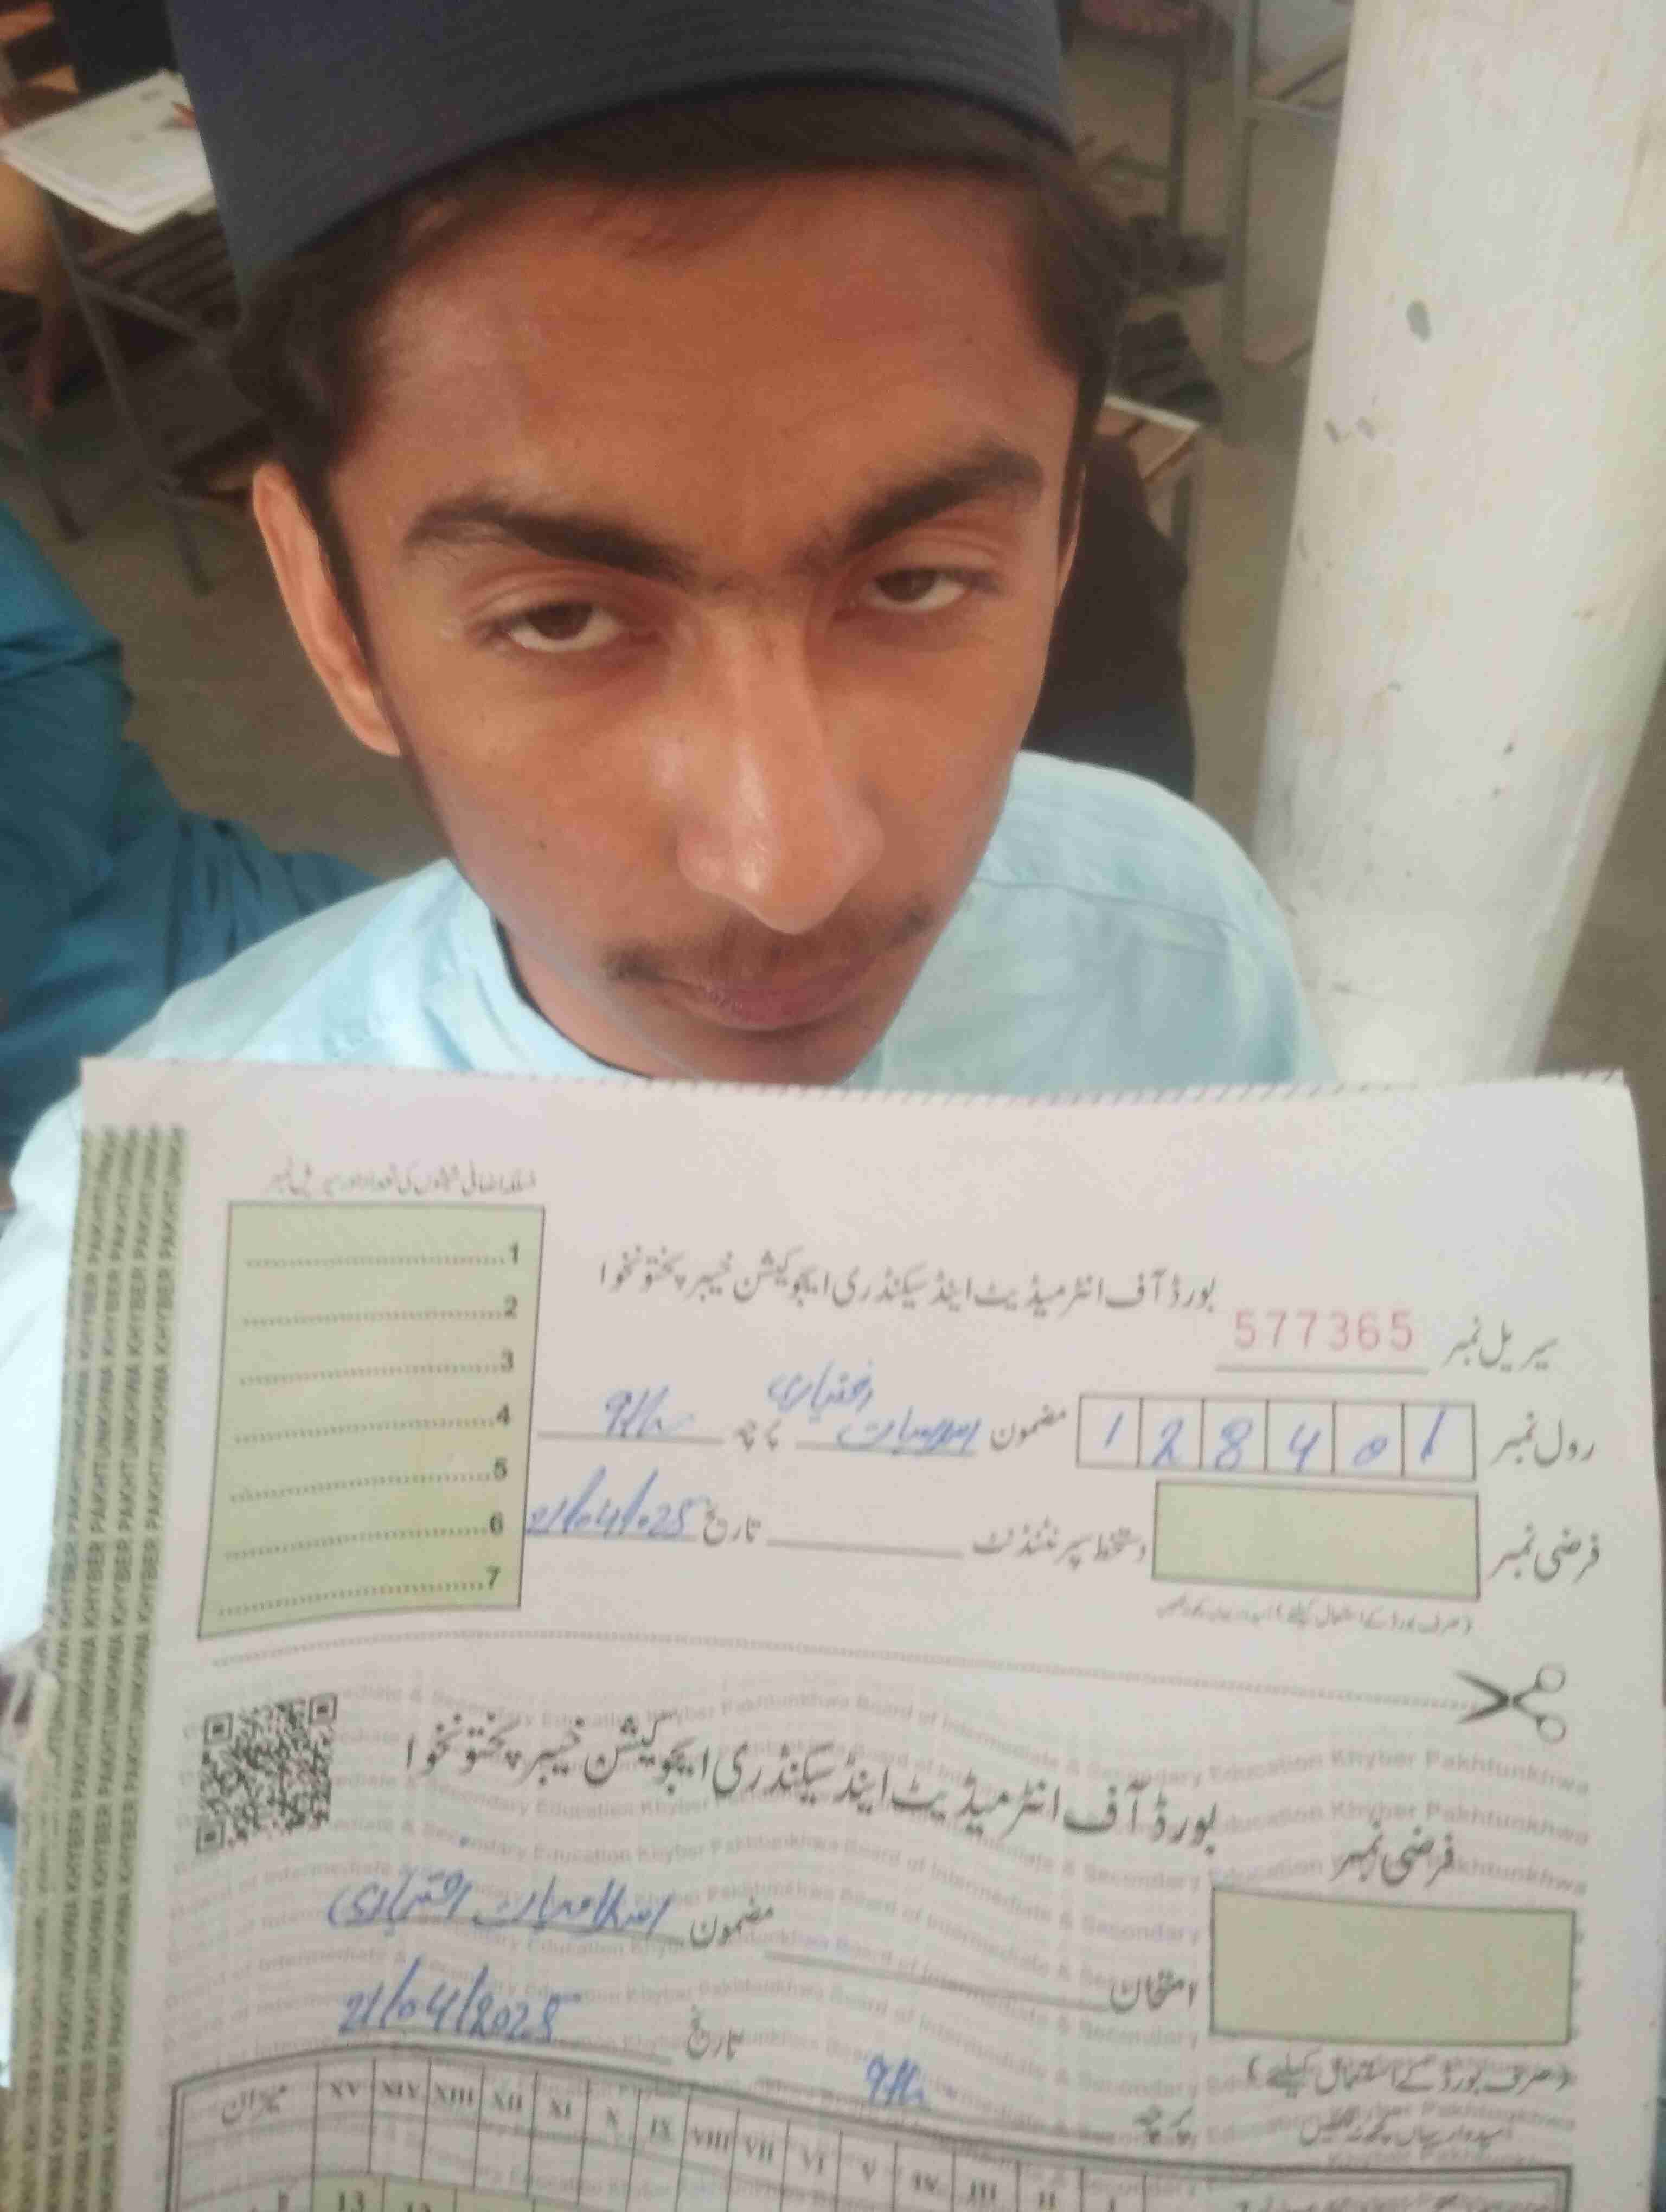 بورڈ آف انٹرمیڈیٹ اینڈ سیکنڈری ایجوکیشن خیبر پختونخوا
سیریل نمبر 577365
رول نمبر 1 2 8 4 0 1 مضمون اسلامیات اختیاری پرچہ 9th
فرضی نمبر دستخط سپرنٹنڈنٹ تاریخ 21/04/025
(صرف بورڈ کے استعمال کیلئے)
1
2
3
4
5
6
7
بورڈ آف انٹرمیڈیٹ اینڈ سیکنڈری ایجوکیشن خیبر پختونخوا
فرضی نمبر
مضمون اسلامیات اختیاری
امتحان
تاریخ 21/04/2025
(صرف بورڈ کے استعمال کیلئے)
پرچہ 9th
میزان XV XIV XIII XII XI X IX VIII VII VI V IV III II I
13 12
KHYBER PAKHTUNKHWA
Board of Intermediate & Secondary Education Khyber Pakhtunkhwa